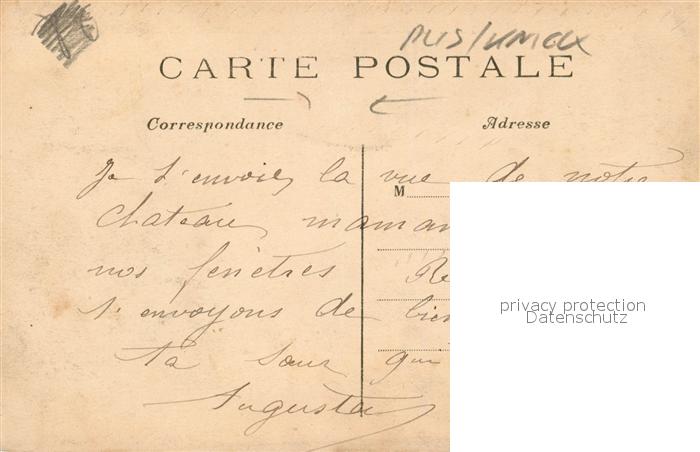 CARTE POSTALE
Correspondance Adresse
M
Je t'envoie la vue de notre
chateau maman
nos fenêtres Re
t'envoyons de bien
Ta soeur qui
Augusta
privacy protection
Datenschutz